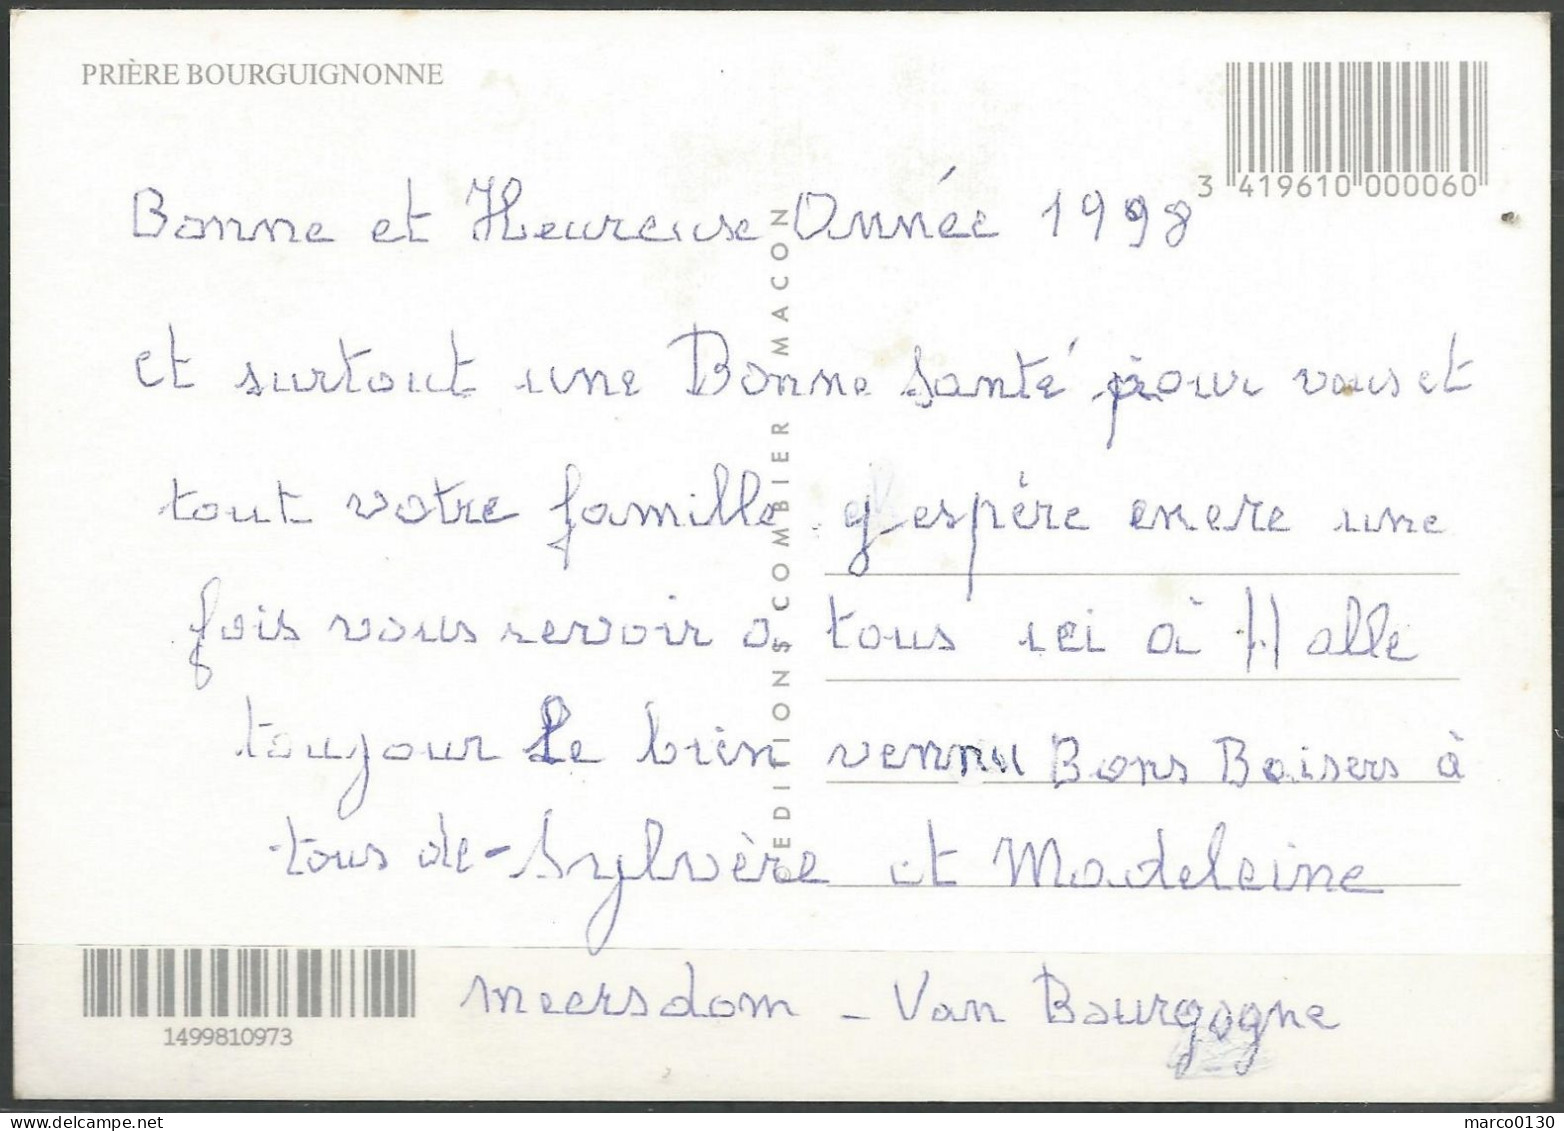 PRIÈRE BOURGUIGNONNE
3 419610 000060
Bonne et Heureuse Année 1998
et surtout une Bonne Santé pour vous et
tout votre famille j'espère encre une
fois vous revoir a tous ici à Halle
toujour Le bien vennu Bons Baisers à
tous de - Sylvère et Madeleine
Meersdom - Van Bourgogne
EDITIONS COMBIER MACON
1499810973
marco0130